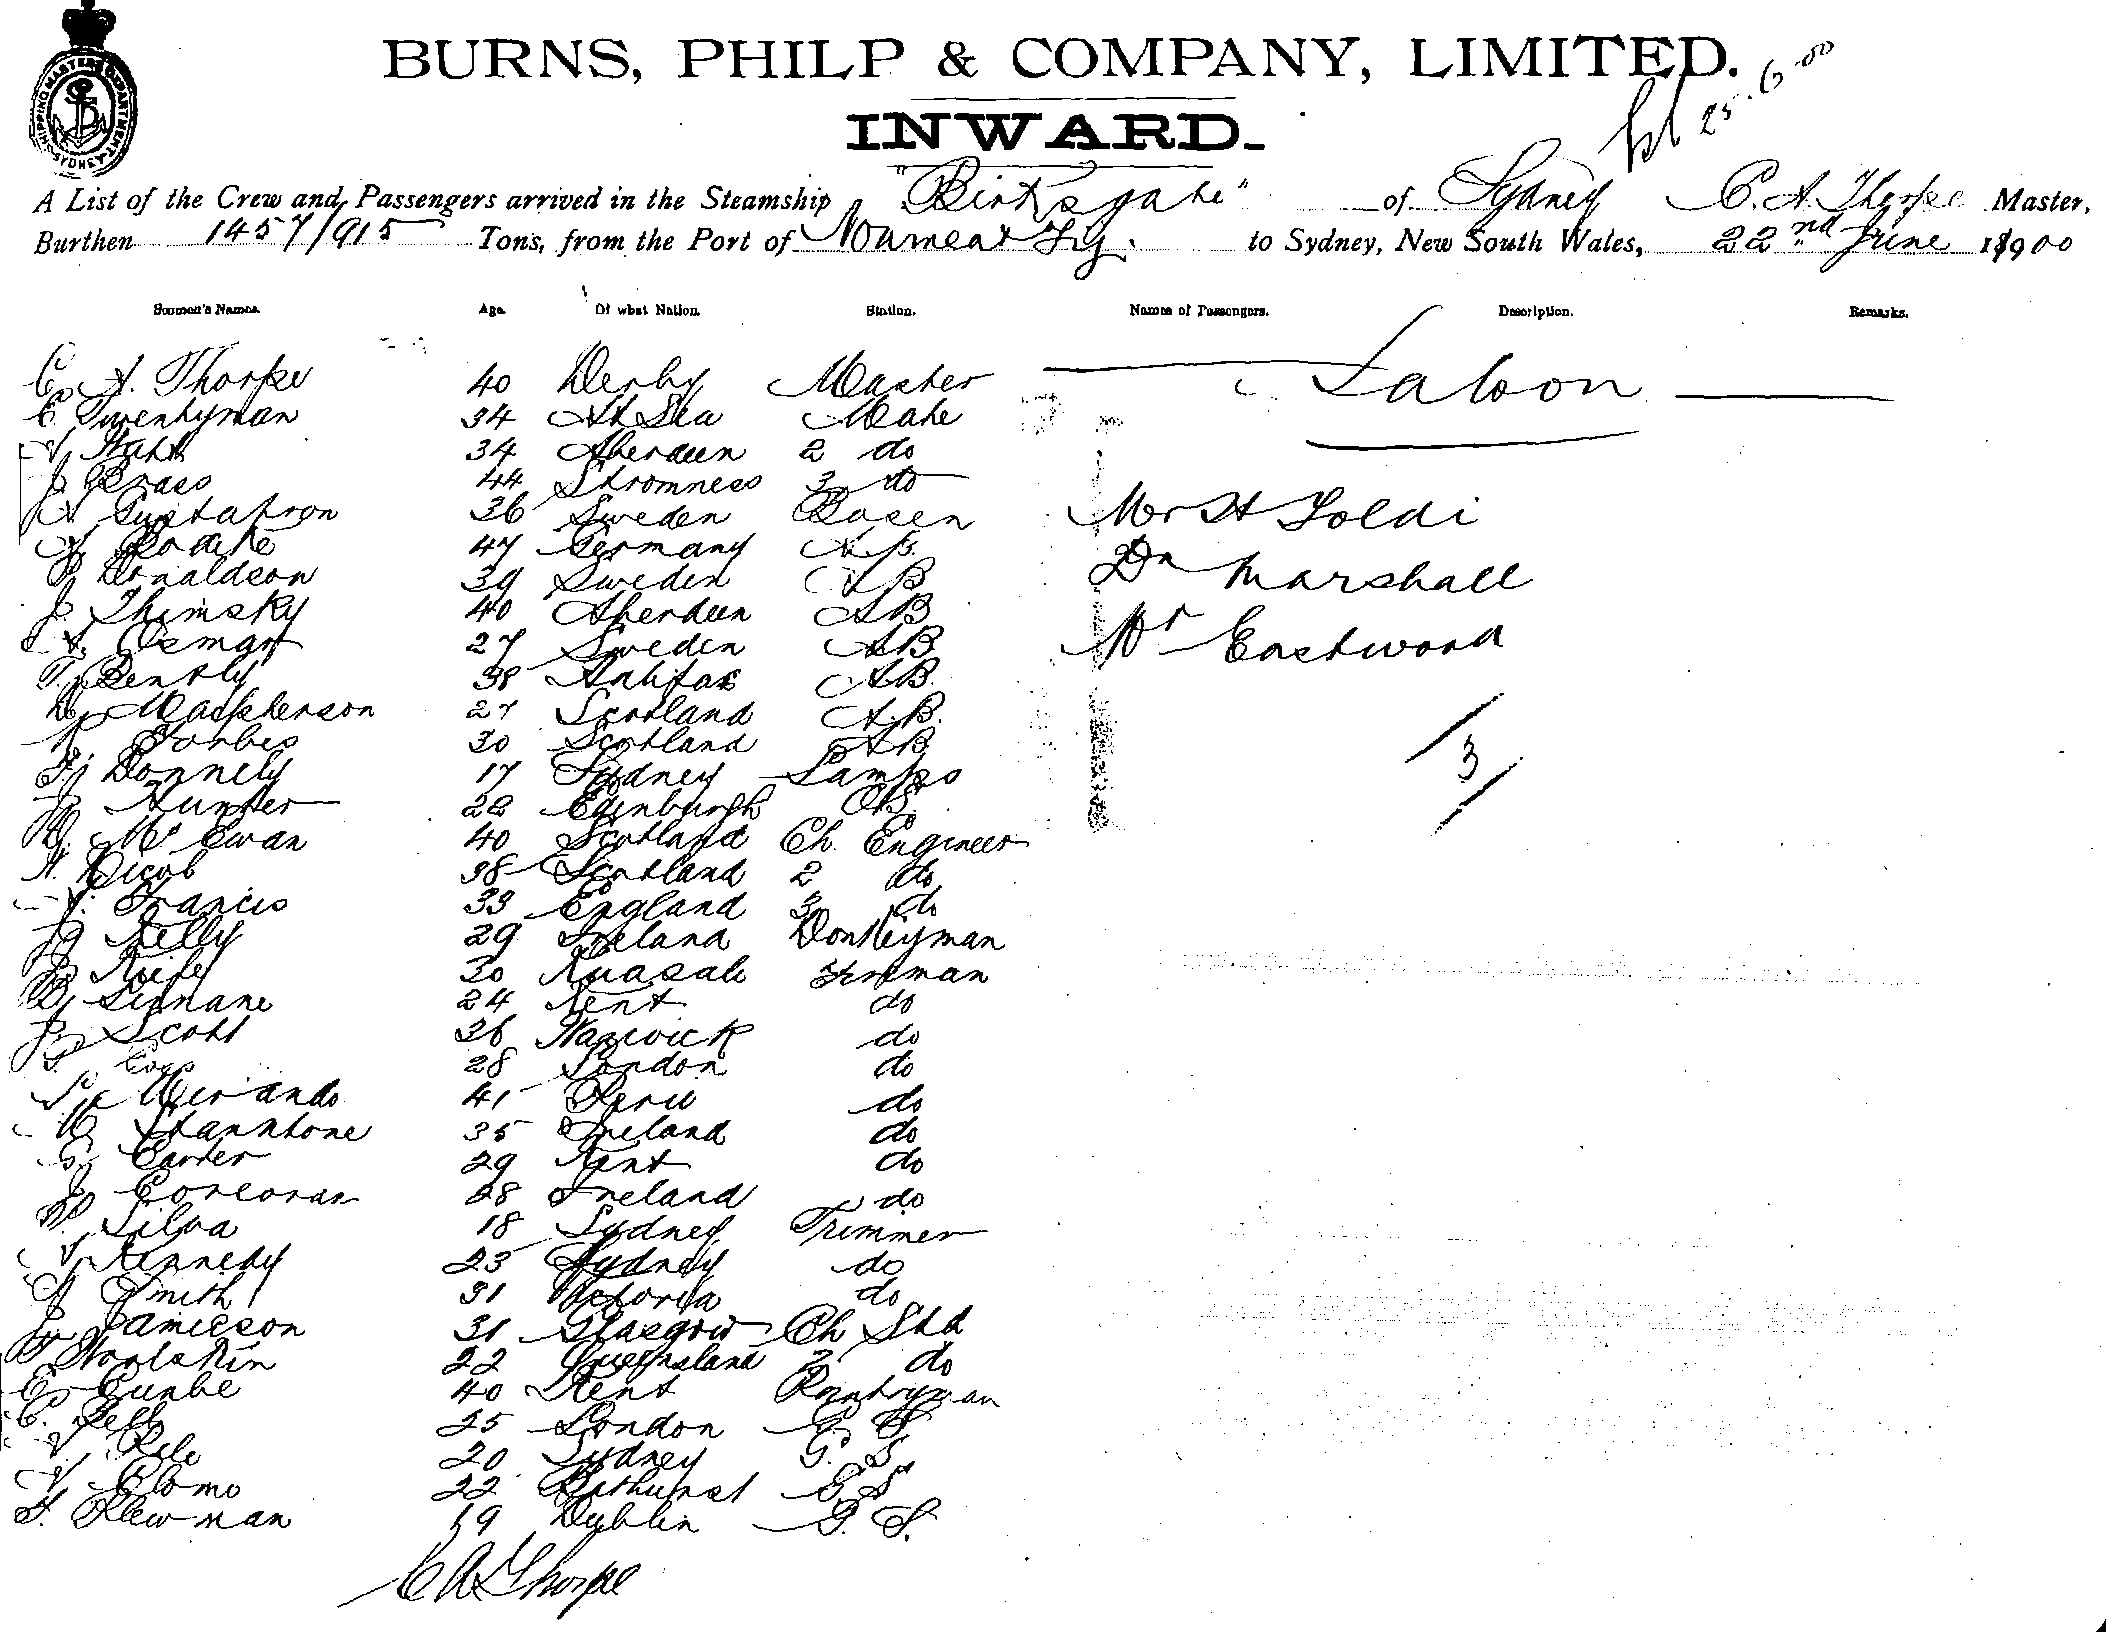 BURNS, PHILP & COMPANY, LIMITED.
INWARD.
25.6.00
SHIPPING MASTERS DEPARTMENT SYDNEY
A List of the Crew and Passengers arrived in the Steamship "Birksgate" of Sydney C. A. Thorpe Master,
Burthen 1457/915 Tons, from the Port of Noumea & Fiji. to Sydney, New South Wales, 22nd June 1900
Seamen's Names. Age. Of what Nation. Station. Names of Passengers. Description. Remarks.
C. A. Thorpe 40 Derby Master Saloon
C Twentyman 34 At Sea Mate
34 Aberdeen 2 do
J. Brass 44 Stromness 3 do
A Gustafson 36 Sweden Bosen Mr H Soldi
47 Germany A.B.
Donaldson 39 Sweden AB Dr Marshall
J. Thimsky 40 Aberdeen AB
A. Osman 27 Sweden AB Mr Eastwood
T. Bently 38 Halifax AB
D. Macpherson 27 Scotland A.B.
Forbes 30 Scotland AB
3
F. Donnely 17 Sydney Lamps
Hunter 22 Edinburgh OS
D. McEwan 40 Scotland Ch. Engineer
A. Nicol 38 Scotland 2 do
Francis 33 England 3 do
J Kelly 29 Ireland Donkeyman
30 Fireman
24 Kent do
J. Scott 36 Warwick do
28 London do
41 Peru do
35 Ireland do
G. Carter 29 Kent do
J Corcoran 28 Ireland do
Silva 18 Sydney Trimmer
Kennedy 23 Sydney do
A Smith 31 Victoria do
J. Jamieson 31 Glasgow Ch Std
22 Queensland 2 do
E. 40 Kent Pantryman
C. 25 London G. S.
20 Sydney G. S
22 Bathurst G S
F. Plewman 19 Dublin G. S.
C A Thorpe